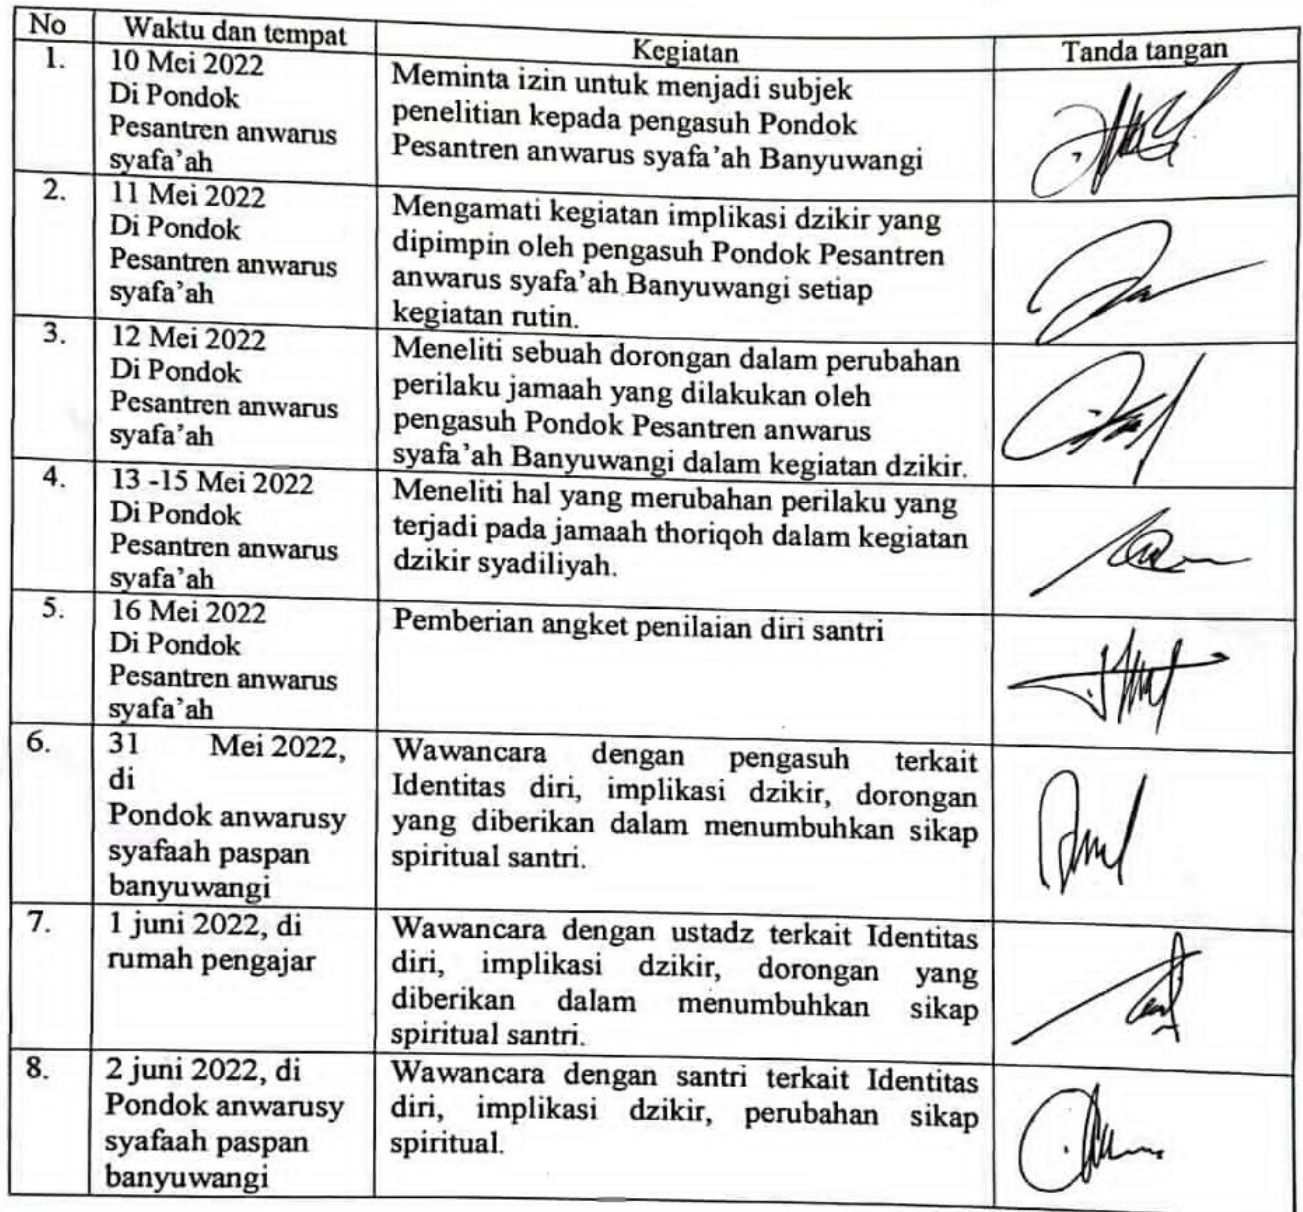 No Waktu dan tempat Kegiatan Tanda tangan
1. 10 Mei 2022
Di Pondok
Pesantren anwarus
syafa'ah
Meminta izin untuk menjadi subjek
penelitian kepada pengasuh Pondok
Pesantren anwarus syafa'ah Banyuwangi
2. 11 Mei 2022
Di Pondok
Pesantren anwarus
syafa'ah
Mengamati kegiatan implikasi dzikir yang
dipimpin oleh pengasuh Pondok Pesantren
anwarus syafa'ah Banyuwangi setiap
kegiatan rutin.
3. 12 Mei 2022
Di Pondok
Pesantren anwarus
syafa'ah
Meneliti sebuah dorongan dalam perubahan
perilaku jamaah yang dilakukan oleh
pengasuh Pondok Pesantren anwarus
syafa'ah Banyuwangi dalam kegiatan dzikir.
4. 13 -15 Mei 2022
Di Pondok
Pesantren anwarus
syafa'ah
Meneliti hal yang merubahan perilaku yang
terjadi pada jamaah thoriqoh dalam kegiatan
dzikir syadiliyah.
5. 16 Mei 2022
Di Pondok
Pesantren anwarus
syafa'ah
Pemberian angket penilaian diri santri
6. 31 Mei 2022,
di
Pondok anwarusy
syafaah paspan
banyuwangi
Wawancara dengan pengasuh terkait
Identitas diri, implikasi dzikir, dorongan
yang diberikan dalam menumbuhkan sikap
spiritual santri.
7. 1 juni 2022, di
rumah pengajar
Wawancara dengan ustadz terkait Identitas
diri, implikasi dzikir, dorongan yang
diberikan dalam menumbuhkan sikap
spiritual santri.
8. 2 juni 2022, di
Pondok anwarusy
syafaah paspan
banyuwangi
Wawancara dengan santri terkait Identitas
diri, implikasi dzikir, perubahan sikap
spiritual.